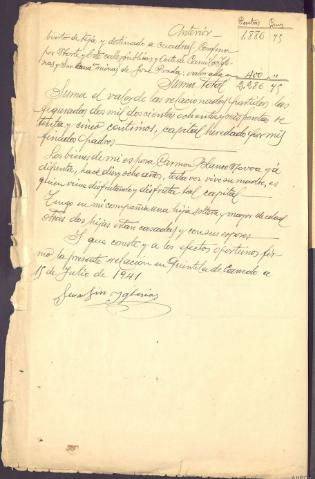 Pesetas Cens
Anterior 1.886 75
bierto de teja y destinado a cuadras. Confina
por Norte y Este calle públicas y Oeste de Camilo
y Sur minas de José Prada; valorada 400 "
Suma total 2.286 75
Suma el valor de las relacionadas partidas las
figuradas dos mil doscientas ochenta y seis pesetas se
tenta y cinco céntimos, capital heredado por mis
finados padres
Los bienes de mi esposa Carmen Blanco Novoa, ya
difunta, hace dieciocho años, toda vez vive su madre, es
quien viene disfrutando y disfruta tal capital
Tengo en mi compañía una hija soltera y mayor de edad
otras dos hijas están casadas y con sus esposos
Y que conste y a los efectos oportunos fir
mo la presente relación en Quintela de Canedo a
15 de Julio de 1941
Serafín Yglesias